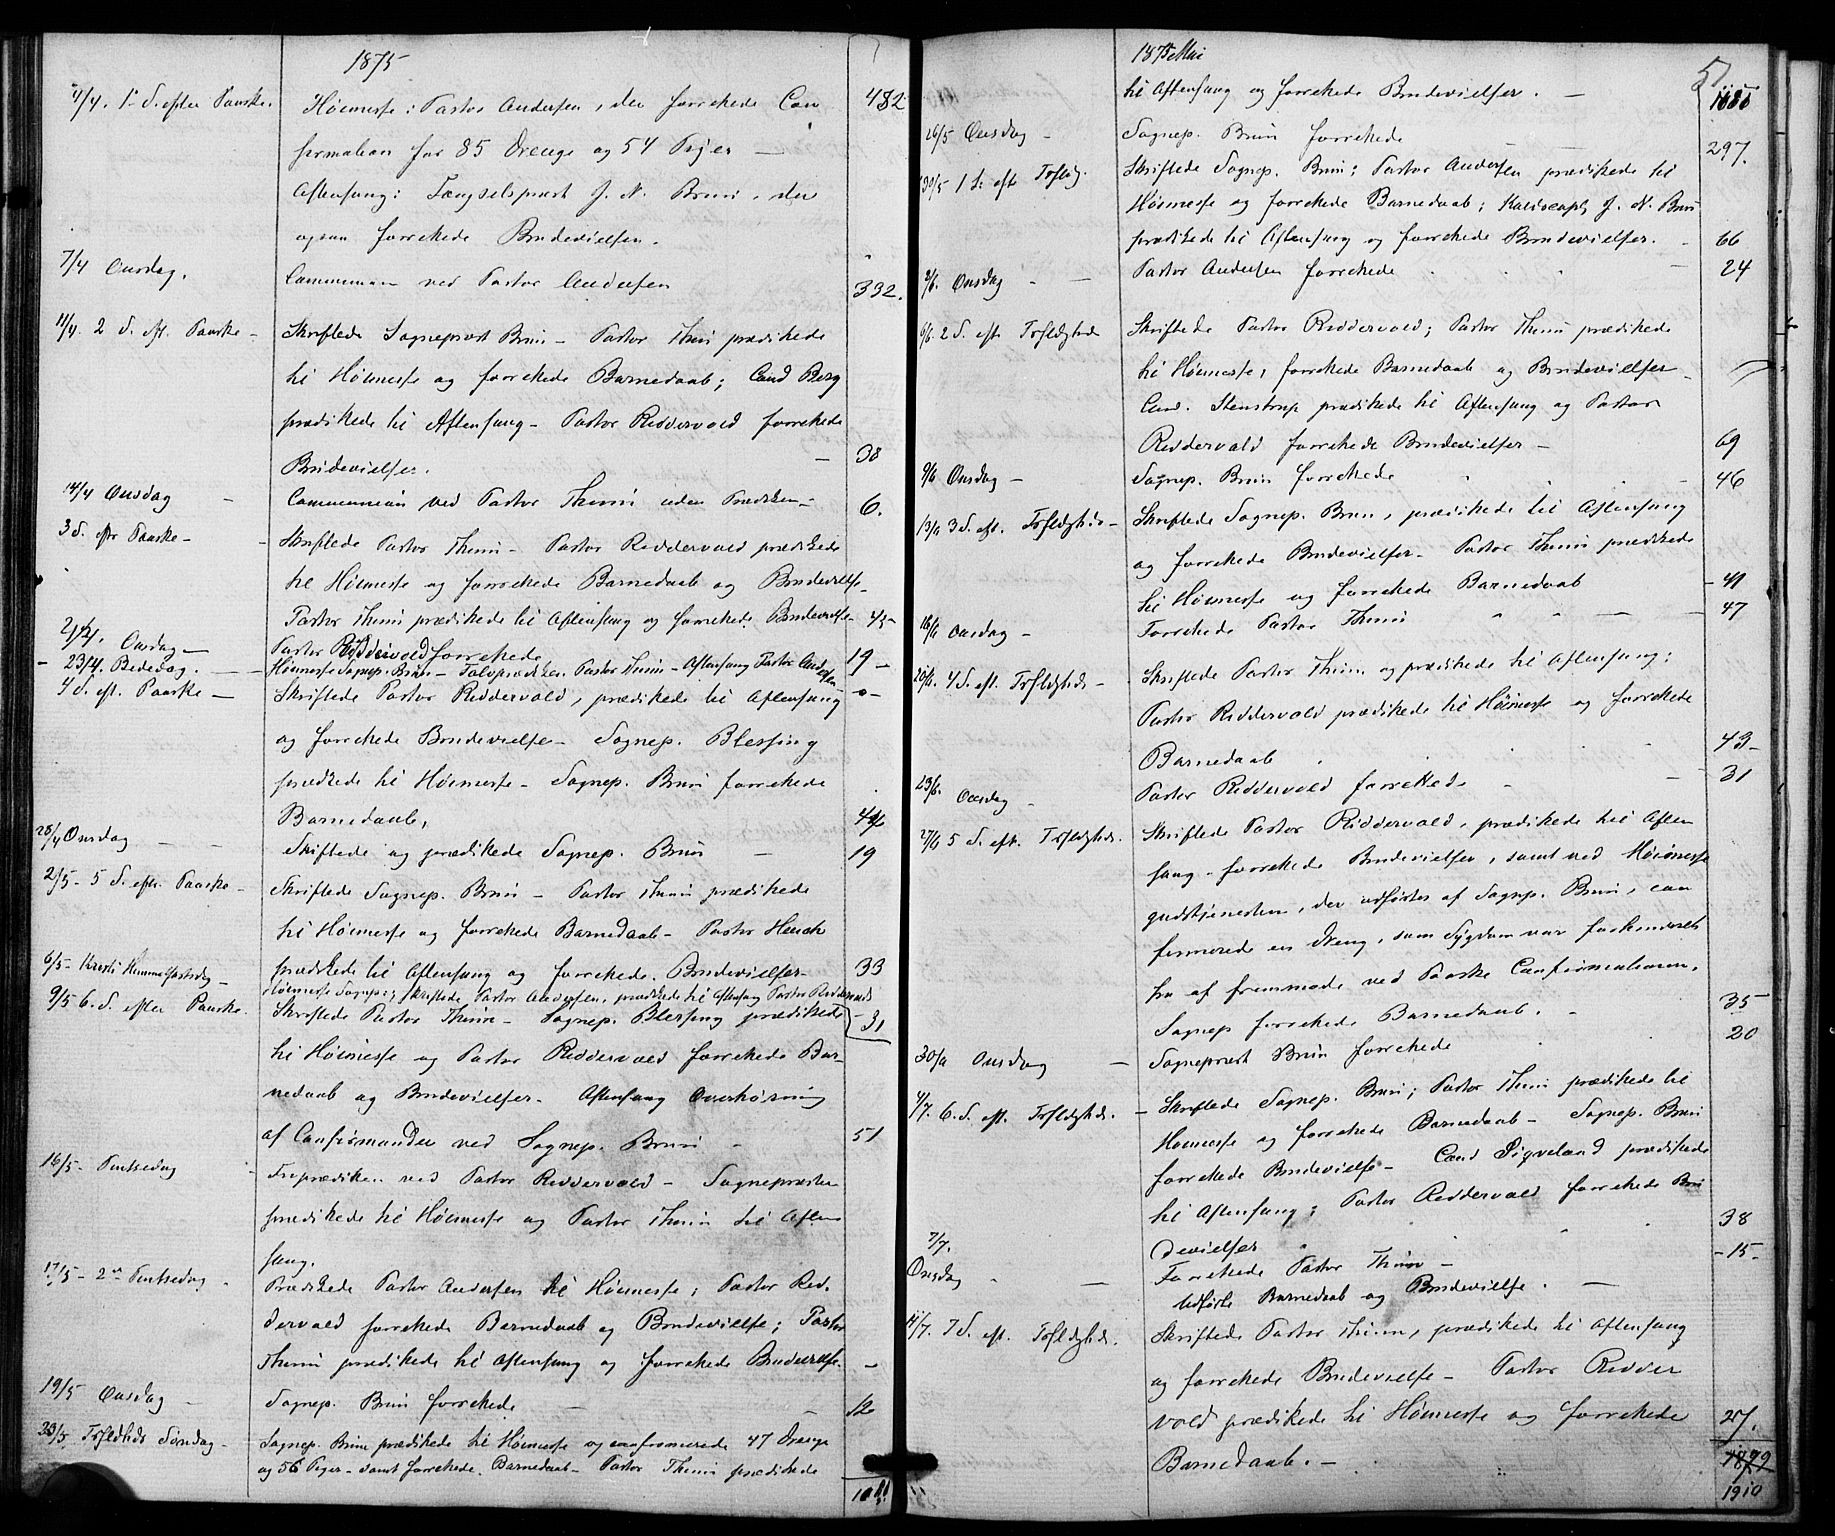 1875
4/4. 1. S. efter Paaske. Høimesse: Pastor Andersen, der forrettede Con 482
firmation for 85 Drenge og 54 Piger —
Aftensang: Fængselspræst J. N. Brun, der
ogsaa forrettede Brudevielsen.
7/4 Onsdag. Communion ved Pastor Andersen 332.
11/4. 2 S. eft. Paaske — Skriftede Sognepræst Brun — Pastor Thuri prædikede
til Høimesse og forrettede Barnedaab; Cand Berg
prædikede til Aftensang — Pastor Riddervold forrettede
Brudevielser. — 38
14/4 Onsdag — Communion ved Pastor Thuri uden Prædiken — 6.
3 S. eftr Paaske — Skriftede Pastor Thuri — Pastor Riddervold prædikede
til Høimesse og forrettede Barnedaab og Brudevielse
Pastor Thuri prædikede til Aftensang og forrettede Brudevielse
Onsdag — Pastor Riddervold forrettede 19 —
— 23/4. Bededag. — Høimesse Sognep. Brun — Pastor Thuri — Aftensang Pastor Andersen
4 S. eft. Paaske — Skriftede Pastor Riddervold, prædikede til Aftensang — o —
og forrettede Brudevielse — Sognep. Blessing
prædikede til Høimesse — Sognep. Brun forrettede
Barnedaab,
28/4 Onsdag — Skriftede og prædikede Sognep. Brun — 19
2/5 — 5 S. efter Paaske — Skriftede Sognep. Brun — Pastor Thuri prædikede
til Høimesse og forrettede Barnedaab — Pastor Heuch
prædikede til Aftensang og forrettede. Brudevielser — 33
6/5 — Kristi Himmelfartsdag — Høimesse Sognep; skriftede Pastor Andersen, prædikede til Aftensang Pastor Riddervold
9/5 6. S. efter Paaske. Skriftede Pastor Thuri — Sognep. Blessing prædikede — 31
til Høimesse og Pastor Riddervold forrettede Bar-
nedaab og Brudevielser — Aftensang Overhøring
af Confirmander ved Sognep. Brun — 51
16/5 — Pintsedag — Froprædiken ved Pastor Riddervold — Sognepræsten
prædikede til Høimesse og Pastor Thuri til Aften
sang.
17/5 — 2den Pintsedag — Prædikede Pastor Andersen til Høimesse; Pastor Rid-
dervold forrettede Barnedaab og Brudevielse; Pastor
Thuri prædikede til Aftensang og forrettede Brudevielse. —
19/5 Onsdag — Sognep. Brun forrettede — 12
23/5 Trefoldheds Søndag — Sognep. Brun prædikede til Høimesse og confirmerede 47 Drenge
og 56 Piger — samt forrettede. Barnedaab — Pastor Thuri prædikede
1875 Mai
til Aftensang og forrettede Brudevielser. —
26/5 Onsdag — Sognep. Brun forrettede — 297.
30/5 1 S. eft Trefoldg. Skriftede Sognep. Brun; Pastor Andersen prædikede til
Høimesse og forrettede Barnedaab; J. N. Brun
prædikede til Aftensang og forrettede Brudevielser. — 66
2/6. Onsdag — Pastor Andersen forrettede — 24
6/6. 2 S. eft. Trefoldghede Skriftede Pastor Riddervold; Pastor Thuri prædikede
til Høimesse, forrettede Barnedaab og Brudevielser —
Cand. Stenstrup prædikede til Aftensang og Pastor
Riddervold forrettede Brudevielser — 69
9/6 Onsdag — Sognep. Brun forrettede — 46
13/6 3 S. eft. Trefoldgheds — Skriftede Sognep. Brun, prædikede til Aftensang
og forrettede Brudevielser — Pastor Thuri prædikede
til Høimesse og forrettede Barnedaab — 41
16/6 Onsdag — Forrettede Pastor Thuri — 47
20/6. 4 S. eft. Trefoldgheds — Skriftede Pastor Thuri og prædikede til Aftensang;
Pastor Riddervold prædikede til Høimesse og forrettede
Barnedaab 43 —
23/6. Onsdag — Pastor Riddervold forrettede — 31
27/6 5 S. eft. Trefoldgheds. Skriftede Pastor Riddervold, prædikede til Aften
sang — forrettede Brudevielser, samt ved Høimesse
gudstjenesten, der udførtes af Sognep. Brun, con
firmerede en Dreng, som Sygdom var forhindret
fra at fremmøde ved Paaske Confirmationen.
Sognep forrettede Barnedaab. — 35
30/6 Onsdag — Sognepræst Brun forrettede 20
4/7. 6. S. eft. Trefoldgheds. — Skriftede Sognep. Brun; Pastor Thuri prædikede til
Høimesse og forrettede Barnedaab — Sognep. Brun
forrettede Brudevielse — Cand Sigveland prædikede
til Aftensang; Pastor Riddervold forrettede Bru
devielser 38
7/7. Onsdag — Forrettede Pastor Thuri — — 15 —
Udførte Barnedaab og Brudevielse. —
11/7. 7 S. eft. Trefoldgheds. Skriftede Pastor Thuri, prædikede til Aftensang
og forrettede Brudevielse — Pastor Ridder
vold prædikede til Høimesse og forrettede 27.
Barnedaab. — 1879
1910